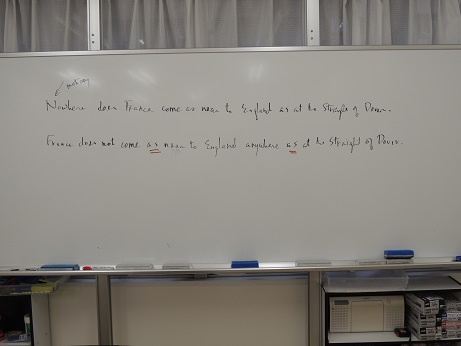 Nowhere does France come as near to England as at the Straight of Dover.
France does not come as near to England anywhere as at the Straight of Dover.